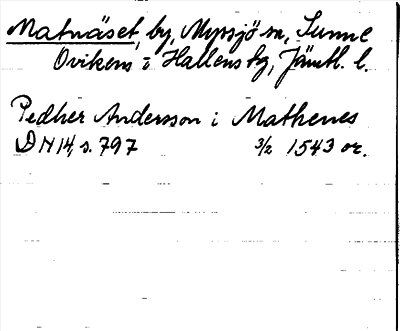 Matnäset, by, Myssjö sn, Sunne
Ovikens o Hallens tg, Jämtl. l.
Pedher Andersson i Mathenes
DN 14, s. 797 3/2 1543 or.